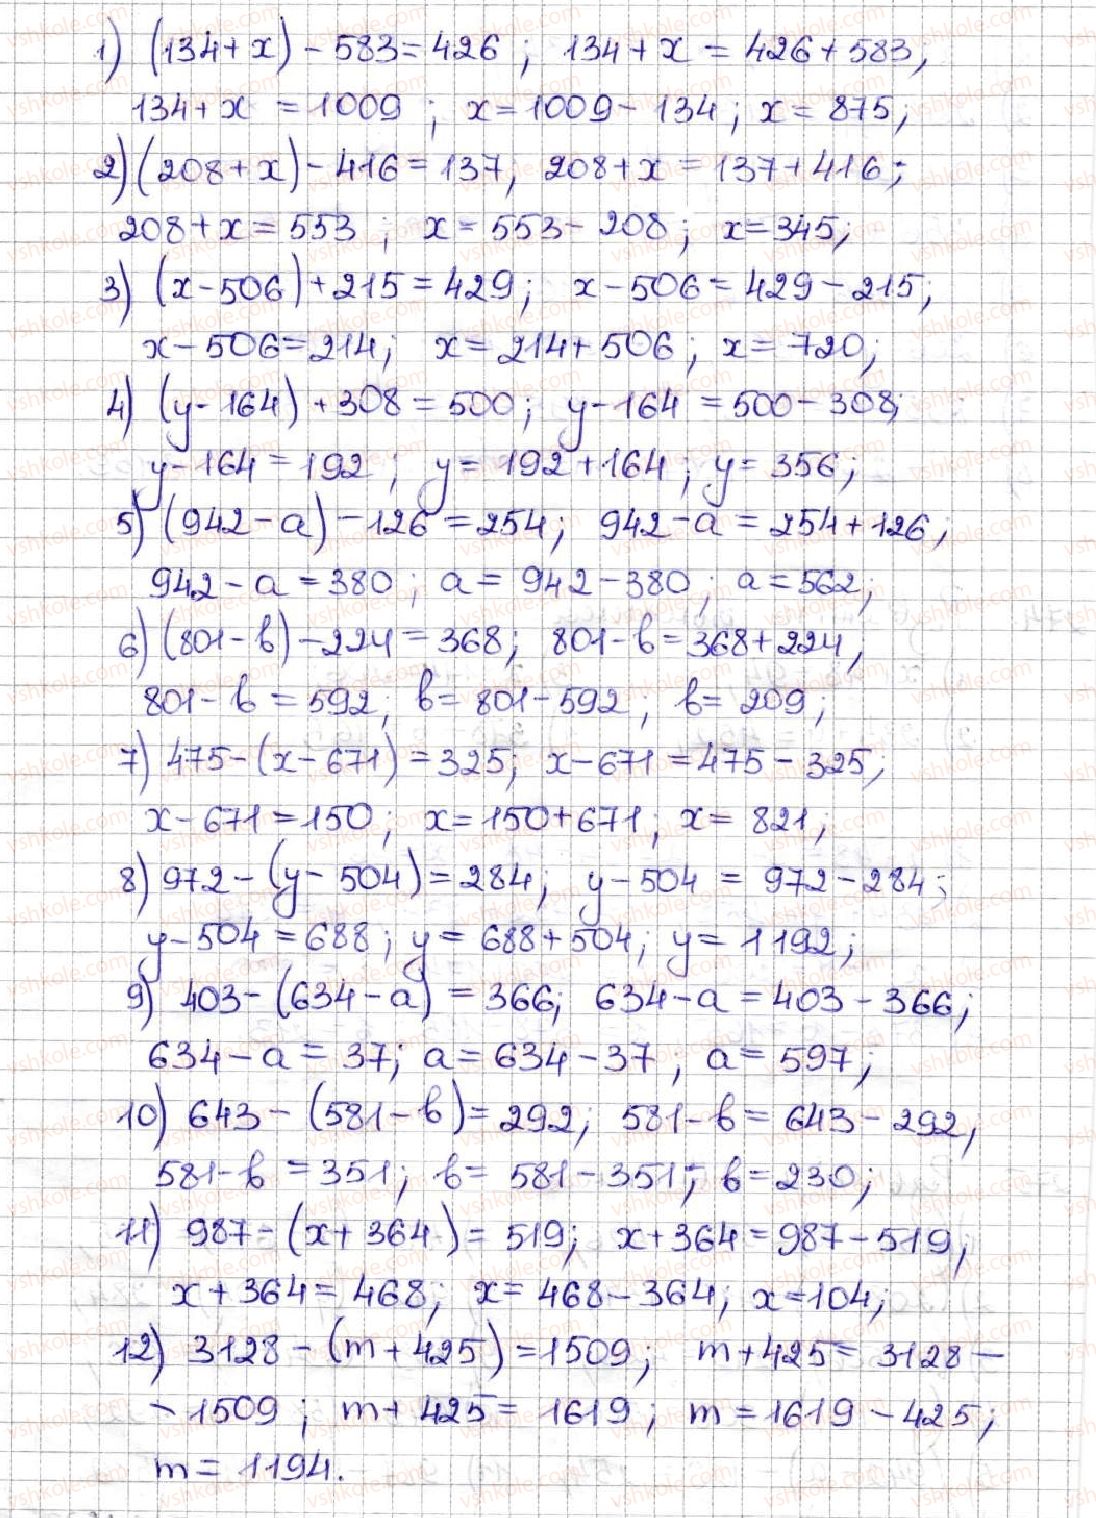 1) (134+x) - 583 = 426 ; 134 + x = 426 + 583;
134+x = 1009 ; x = 1009 - 134 ; x = 875;
2) (208+x) - 416 = 137; 208+x = 137+416;
208+x = 553 ; x = 553 - 208 ; x = 345;
3) (x-506)+215 = 429; x-506 = 429-215;
x-506 = 214; x = 214+506 ; x = 720;
4) (y-164) + 308 = 500; y-164 = 500-308;
y-164 = 192 ; y = 192+164 ; y = 356;
5) (942-a) - 126 = 254; 942-a = 254+126;
942-a = 380 ; a = 942-380; a = 562;
6) (801-b) - 224 = 368; 801-b = 368+224;
801-b = 592; b = 801-592 ; b = 209;
7) 475-(x-671) = 325; x-671 = 475-325;
x-671 = 150; x = 150+671; x = 821;
8) 972-(y-504) = 284; y-504 = 972-284;
y-504 = 688; y = 688+504; y = 1192;
9) 403-(634-a) = 366; 634-a = 403-366;
634-a = 37; a = 634-37 ; a = 597;
10) 643-(581-b) = 292; 581-b = 643-292;
581-b = 351; b = 581-351; b = 230;
11) 987-(x+364) = 519; x+364 = 987-519;
x+364 = 468; x = 468-364; x = 104;
12) 3128-(m+425) = 1509; m+425 = 3128-
-1509 ; m+425 = 1619 ; m = 1619-425;
m = 1194.